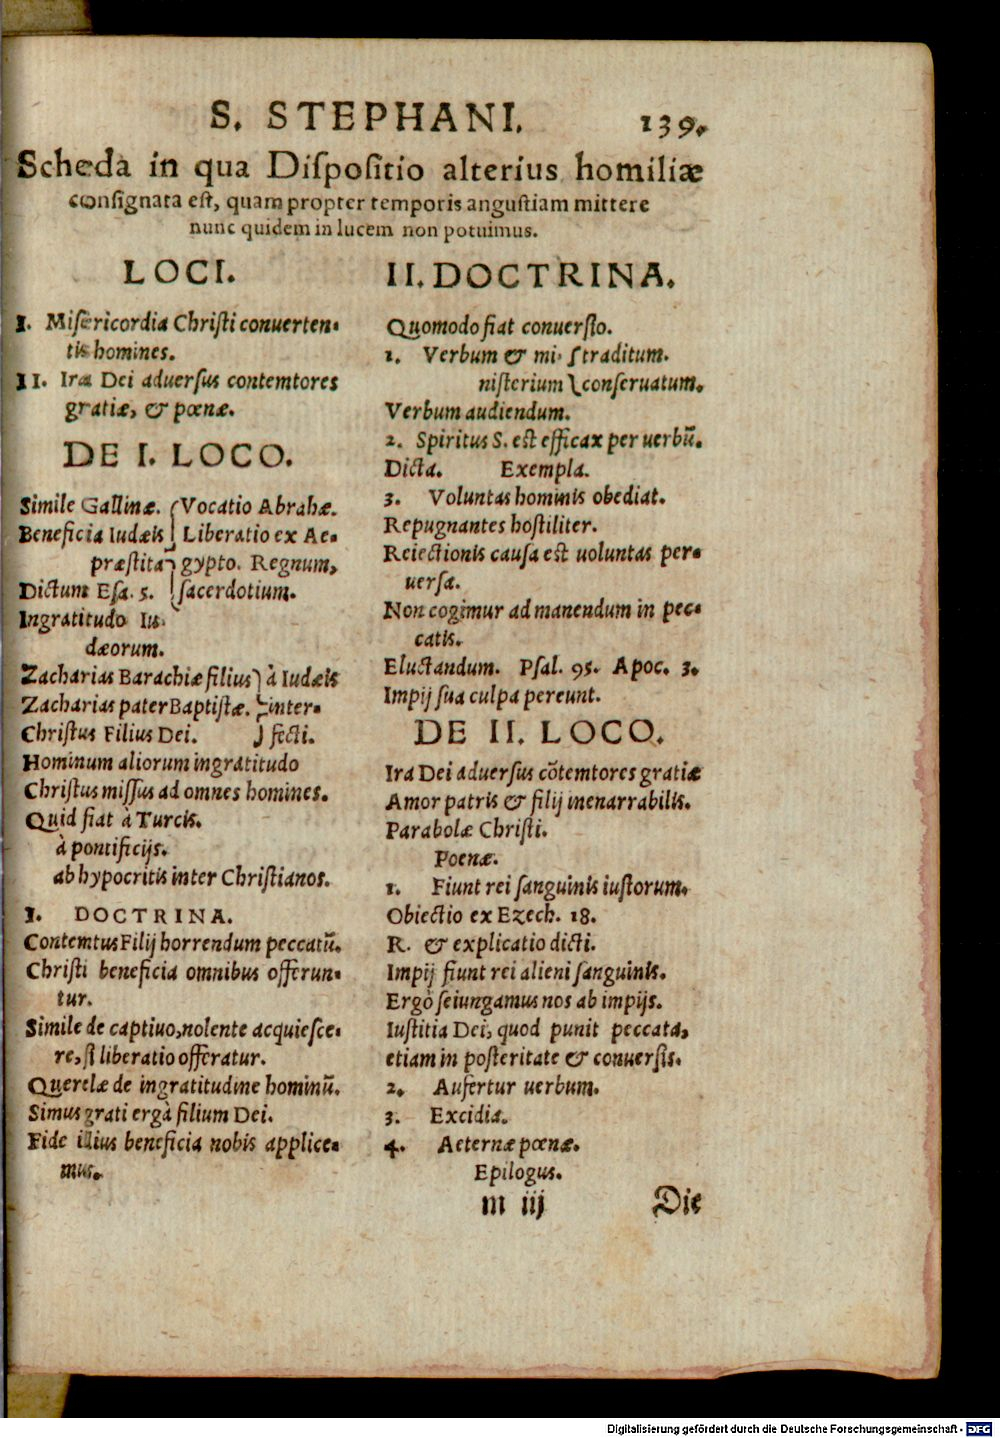 S. STEPHANI. 139.
Scheda in qua Diſpoſitio alterius homiliæ
conſignata eſt, quam propter temporis anguſtiam mittere
nunc quidem in lucem non potuimus.
LOCI.
I. Miſericordia Chriſti conuerten-
tis homines.
II. Ira Dei aduerſus contemtores
gratiæ, & pœnæ.
DE I. LOCO.
Simile Gallinæ. { Vocatio Abrahæ.
Beneficia Iudæis Liberatio ex Ae-
præſtita gypto. Regnum,
Dictum Eſa. 5. ſacerdotium.
Ingratitudo Iu-
dæorum.
Zacharias Barachiæ filius } à Iudæis
Zacharias pater Baptiſtæ. inter-
Chriſtus Filius Dei. fecti.
Hominum aliorum ingratitudo
Chriſtus miſſus ad omnes homines.
Quid fiat à Turcis.
à pontificijs.
ab hypocritis inter Chriſtianos.
I. DOCTRINA.
Contemtus Filij horrendum peccatū.
Chriſti beneficia omnibus offerun-
tur.
Simile de captiuo, nolente acquieſce-
re, ſi liberatio offeratur.
Querelæ de ingratitudine hominū.
Simus grati ergà filium Dei.
Fide illius beneficia nobis applice-
mus.
II. DOCTRINA.
Quomodo fiat conuerſio.
1. Verbum & mi- { traditum.
niſterium conſeruatum.
Verbum audiendum.
2. Spiritus S. eſt efficax per uerbū.
Dicta. Exempla.
3. Voluntas hominis obediat.
Repugnantes hoſtiliter.
Reiectionis cauſa eſt uoluntas per-
uerſa.
Non cogimur ad manendum in pec-
catis.
Eluctandum. Pſal. 95. Apoc. 3.
Impij ſua culpa pereunt.
DE II. LOCO.
Ira Dei aduerſus cōtemtores gratiæ
Amor patris & filij inenarrabilis.
Parabolæ Chriſti.
Poenæ.
1. Fiunt rei ſanguinis iuſtorum.
Obiectio ex Ezech. 18.
R. & explicatio dicti.
Impij fiunt rei alieni ſanguinis.
Ergò ſeiungamus nos ab impijs.
Iuſtitia Dei, quod punit peccata,
etiam in poſteritate & conuerſis.
2. Aufertur uerbum.
3. Excidia.
4. Aeternæ pœnæ.
Epilogus.
m iij Die
Digitalisierung gefördert durch die Deutsche Forschungsgemeinschaft - DFG